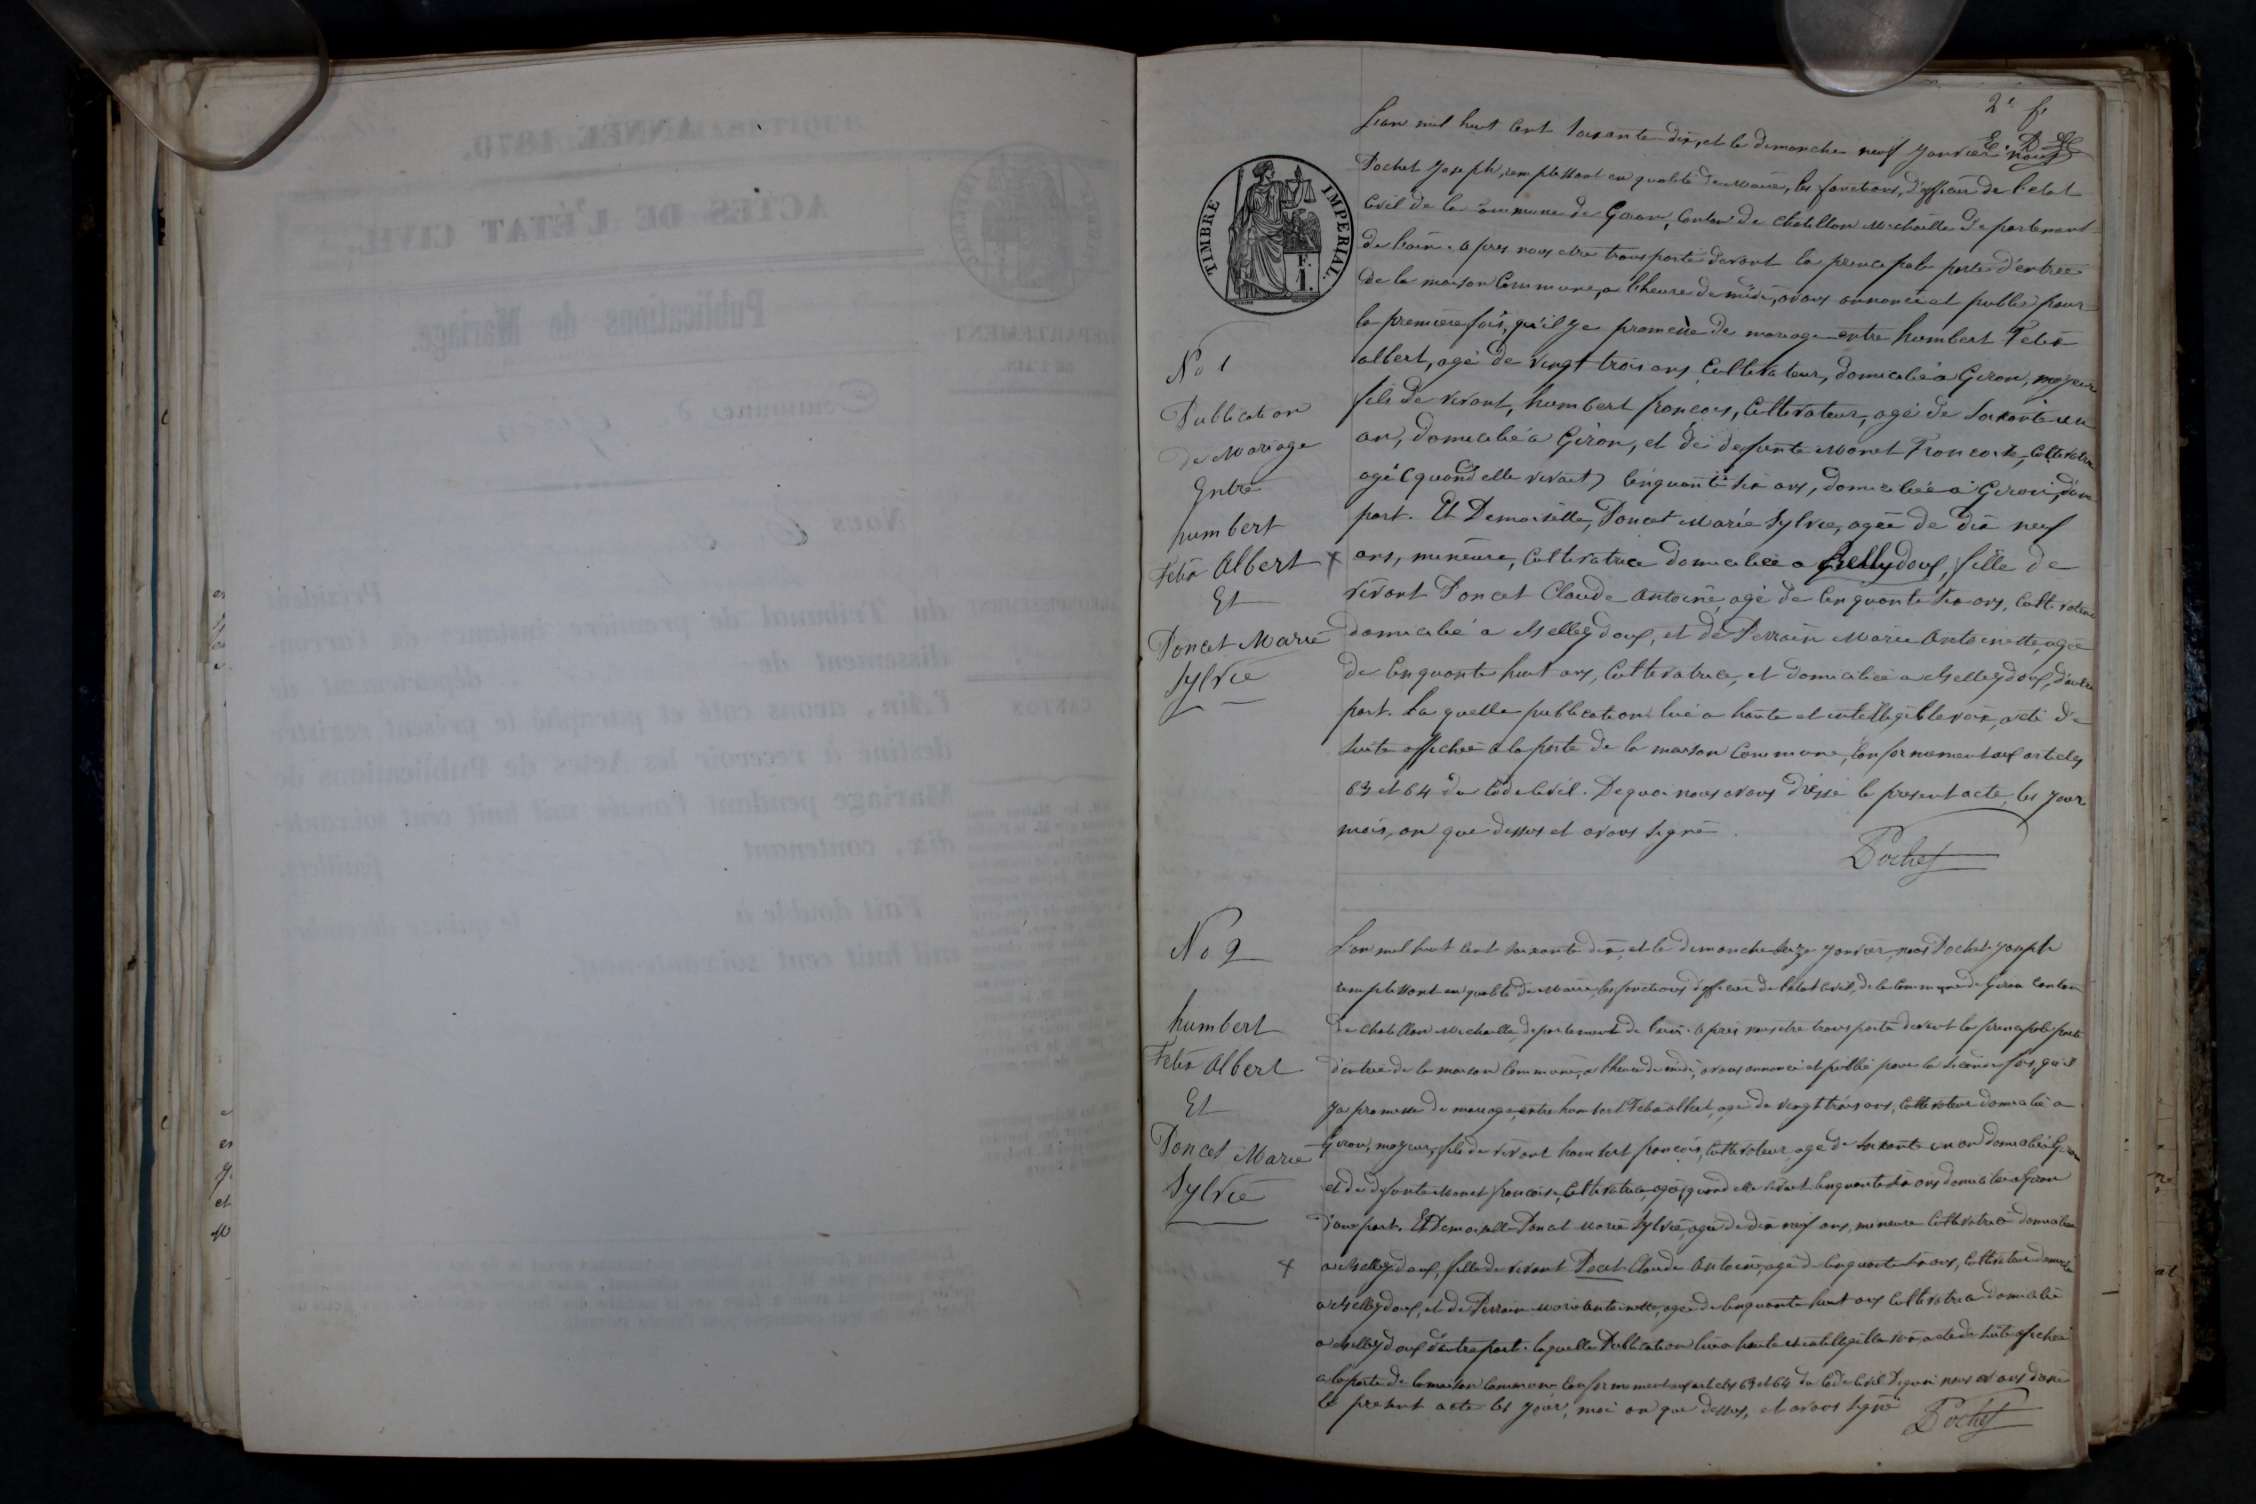 2e f.
L'an mil huit cent soixante dix, et le dimanche neuf janvier nous
Pochet Joseph, remplissant en qualité de Maire, les fonctions, d'officier de l'etat
civil de la commune de Giron, canton de Chatillon Michaille departement
de l'ain. apres nous etre transporté devant la principale porte d'entrée
de la maison Commune, a l'heure de midi, avons annoncé et publié pour
la premiere fois, qu'il y a promesse de mariage entre humbert Felix
albert, agé de vingt trois ans, Cultivateur, domicilié a Giron, majeur
fils de vivant, humbert françois, Cultivateur, agé de soixante un
an, domicilié a Giron, et de defunte Monet Francoise, Cultivatrice
agé (quand elle vivait) cinquante six ans, domiciliée a Giron, d'une
part. Et Demoiselle, Poncet Marie Sylvie, agée de dix neuf
ans, mineure, Cultivatrice domiciliée a Belleydoux, fille de
vivant Poncet Claude antoine, agé de cinquante six ans, Cultivateur
domicilié a Belleydoux, et de Perrain Marie Antoinette, agée
de cinquante huit ans, Cultivatrice, et domiciliée a Belleydoux, d'autre
part. La quelle publication lue a haute et intelligible voix, a été de
suite affichée a la porte de la maison Commune, conformement aux articles
63 et 64 du Code Civil. De quoi nous avons dressé le present acte, les jour
mois, an que dessus et avons signé.
Pochet
TIMBRE IMPERIAL.
F.
1.
No 1
Publication
de Mariage
Entre
humbert
Felix Albert
Et
Poncet Marie
Sylvie
No 2
humbert
Felix Albert
Et
Poncet Marie
Sylvie
L'an mil huit cent soixante dix, et le dimanche seize janvier, nous Pochet Joseph
remplissant en qualité de Maire, les fonctions d'officier de l'etat civil, de la commune de Giron canton
de Chatillon Michaille, departement de l'ain. apres nous etre transporté devant la principale porte
d'entrée de la maison Commune, a l'heure de midi, avons annoncé et publié pour la seconde fois, qu'il
y a promesse de mariage, entre humbert Felix albert, agé de vingt trois ans, Cultivateur domicilié a
Giron, majeur, fils de vivant humbert françois, Cultivateur, agé de soixante un an domicilié a Giron
et de defunte Monet françoise, Cultivatrice, agée, quand elle vivait cinquante six ans domiciliée a Giron
d'une part. Et Demoiselle Poncet Marie Sylvie, agée de dix neuf ans, mineure Cultivatrice domiciliée
a Belleydoux, fille de vivant Pocet Claude Antoine, agé de cinquante six ans, Cultivateur domicilié
a Belleydoux, et de Perrain Marie Antoinette, agée de cinquante huit ans Cultivatrice domiciliée
a Belleydoux d'autre part. laquelle Publication lue a haute et intelligible voix, a été de suite affichée
a la porte de la maison Commune Conformement aux articles 63 et 64 du Code Civil De quoi nous avons dressé
le present acte les jour, moi an que dessus, et avons signé
Pochet
ANNÉE 1870.
ACTES DE L'ÉTAT CIVIL.
Publications de Mariage.